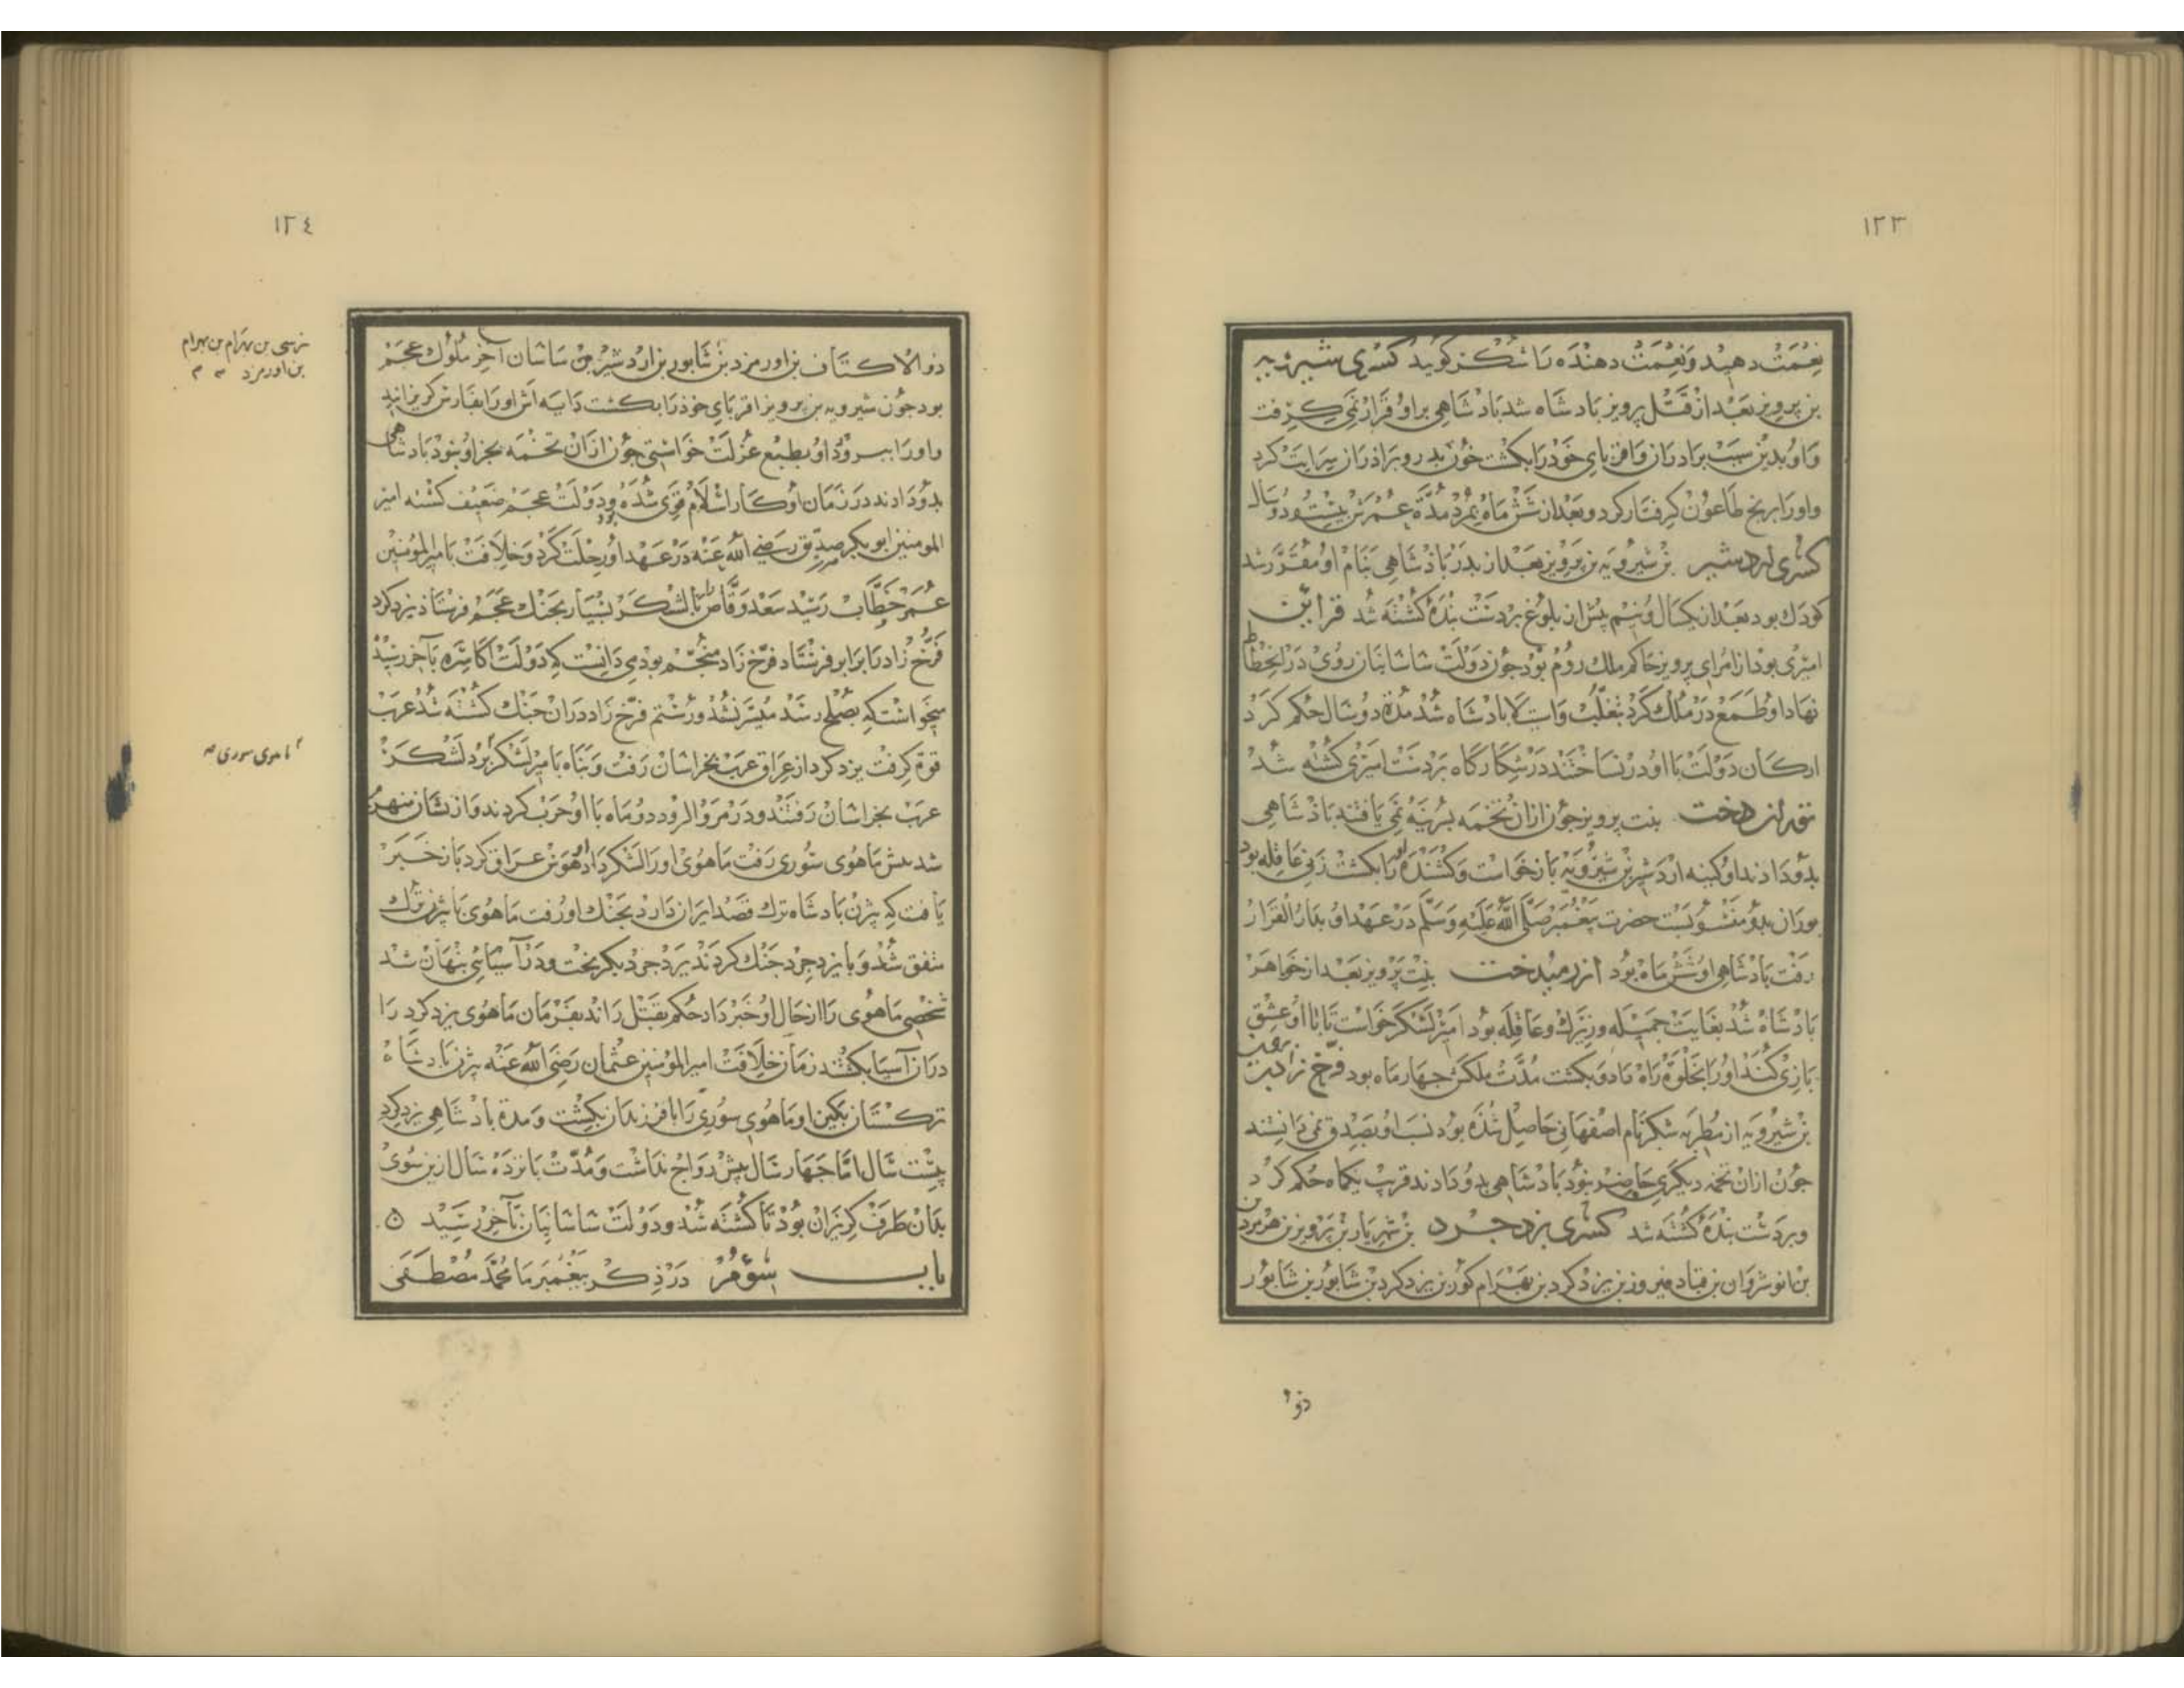 ١٢٣
نعمت دهید و نعمت دهنده را شکر کوید کسری شیرویه
بن پرویز بعد از قتل پرویز بادشاه شد بادشاهی بر او قرار نمی کرفت
و او بدین سبب برادران و اقربای خود را بکشت خون بدر و برادران سرایت کرد
و او را برنج طاعون کرفتار کرد و بعد از شش ماه بمرد مدة عمرش بیست و دو سال
کسری اردشیر بن شیرویه بن پرویز بعد از بدر باذشاهی بنام او مقرر شد
کودک بود بعد از یکسال و نیم پیش از بلوغ بر دست بنده کشته شد قرایین
امیری بود از امرای پرویز حاکم ملک روم بود جون دولت ساسانیان روی در انحطاط
نهاد او طمع در ملک کرد بتغلب و استیلا بادشاه شد مدة دو سال حکم کرد
ارکان دولت با او در نساختند در شکارکاه بر دست امیری کشته شد
توران دخت بنت پرویز جون ازان تخمه نرینه نمی یافتند باذشاهی
بدو دادند او کینه اردشیر بن شیرویه باز خواست و کشنده او را بکشت زنی عاقله بود
بوران بدو منسوبست حضرت پیغمبر صلی الله علیه وسلم در عهد او بدار القرار
رفت بادشاهی او شش ماه بود ازرمیدخت بنت پرویز بعد از خواهر
بادشاه شد بغایت جمیله و زیرک و عاقله بود امیر لشکر خواست تا با او عشق
بازی کند او را بخلوة راه داد و بکشت مدت ملکش جهار ماه بود فرخ زاد
بن شیرویه از مطربه شکر نام اصفهانی حاصل شده بود نسب او بصدق نمی دانستند
جون ازان تخمه دیکری حاضر نبود بادشاهی بدو دادند قریب یکماه حکم کرد
و بر دست بنده کشته شد کسری یزدجرد بن شهریار بن پرویز بن هرمزد
بن انوشروان بن قباد فیروز بن یزدکرد بن بهرام کور بن یزدکرد بن شابور بن شابور
ذو
١٢٤
ذو الاکتاف بن اورمزد بن شابور بن اردشیر بن ساسان آخر ملوک عجم
بود جون شیرویه بن پرویز اقربای خوذ را بکشت دایه اش او را بفارس کریزانید
و او را ببرود او بطبع عزلت خواستی جون ازان تخمه بجز او نبود بادشاهی
بدو دادند در زمان او کار اسلام قوی شده بود و دولت عجم ضعیف کشته امیر
المومنین ابو بکر صدیق رضی الله عنه در عهد او رحلت کرد و خلافت بامیر المؤمنین
عمر خطاب رسید سعد وقاص را با لشکر بسیار بجنک عجم فرستاذ یزدکرد
فرخ زاد را برابر فرستاد فرخ زاد منجم بود می دانست که دولت اکاسره بآخر رسید
میخواست که بصلح رسد میسر نشد و رستم فرخ زاد دران جنک کشته شد عرب
قوة کرفت یزدکرد از عراق عرب بخراسان رفت و بناه با میر لشکر برد لشکر
عرب بخراسان رفتند و در مرو الرود دو ماه با او حرب کردند و از نشان منهزم
شد پیش ماهوی سوری رفت ماهوی او را لشکر داد او عزم عراق کرد باز خبر
یافت که بیژن بادشاه ترک قصد ایران دارد بجنک او رفت ماهوی با بیژن ترک
متفق شد و با یزدجرد جنک کردند یزدجرد بکریخت و در آسیائی بنهان شد
شخصی ماهوی را از حال او خبر داد حکم بقتل راند بفرمان ماهوی یزدکرد را
دران آسیا بکشتند زمان خلافت امیر المؤمنین عثمان رضی الله عنه بیژن بادشاه
ترکستان بکین او ماهوی سوری را با فرزندان بکشت و مدة بادشاهی یزدکرد
بیست سال اما جهار سال بیش رواج نداشت و مدت بانزده سال ازین سوی
بدان طرف کریزان بود تا کشته شد و دولت ساسانیان بآخر رسید
باب سوم در ذکر پیغمبر ما محمد مصطفی
نرسی بن بهرام بن بهرام
بن اورمزد
ماهوی سوری